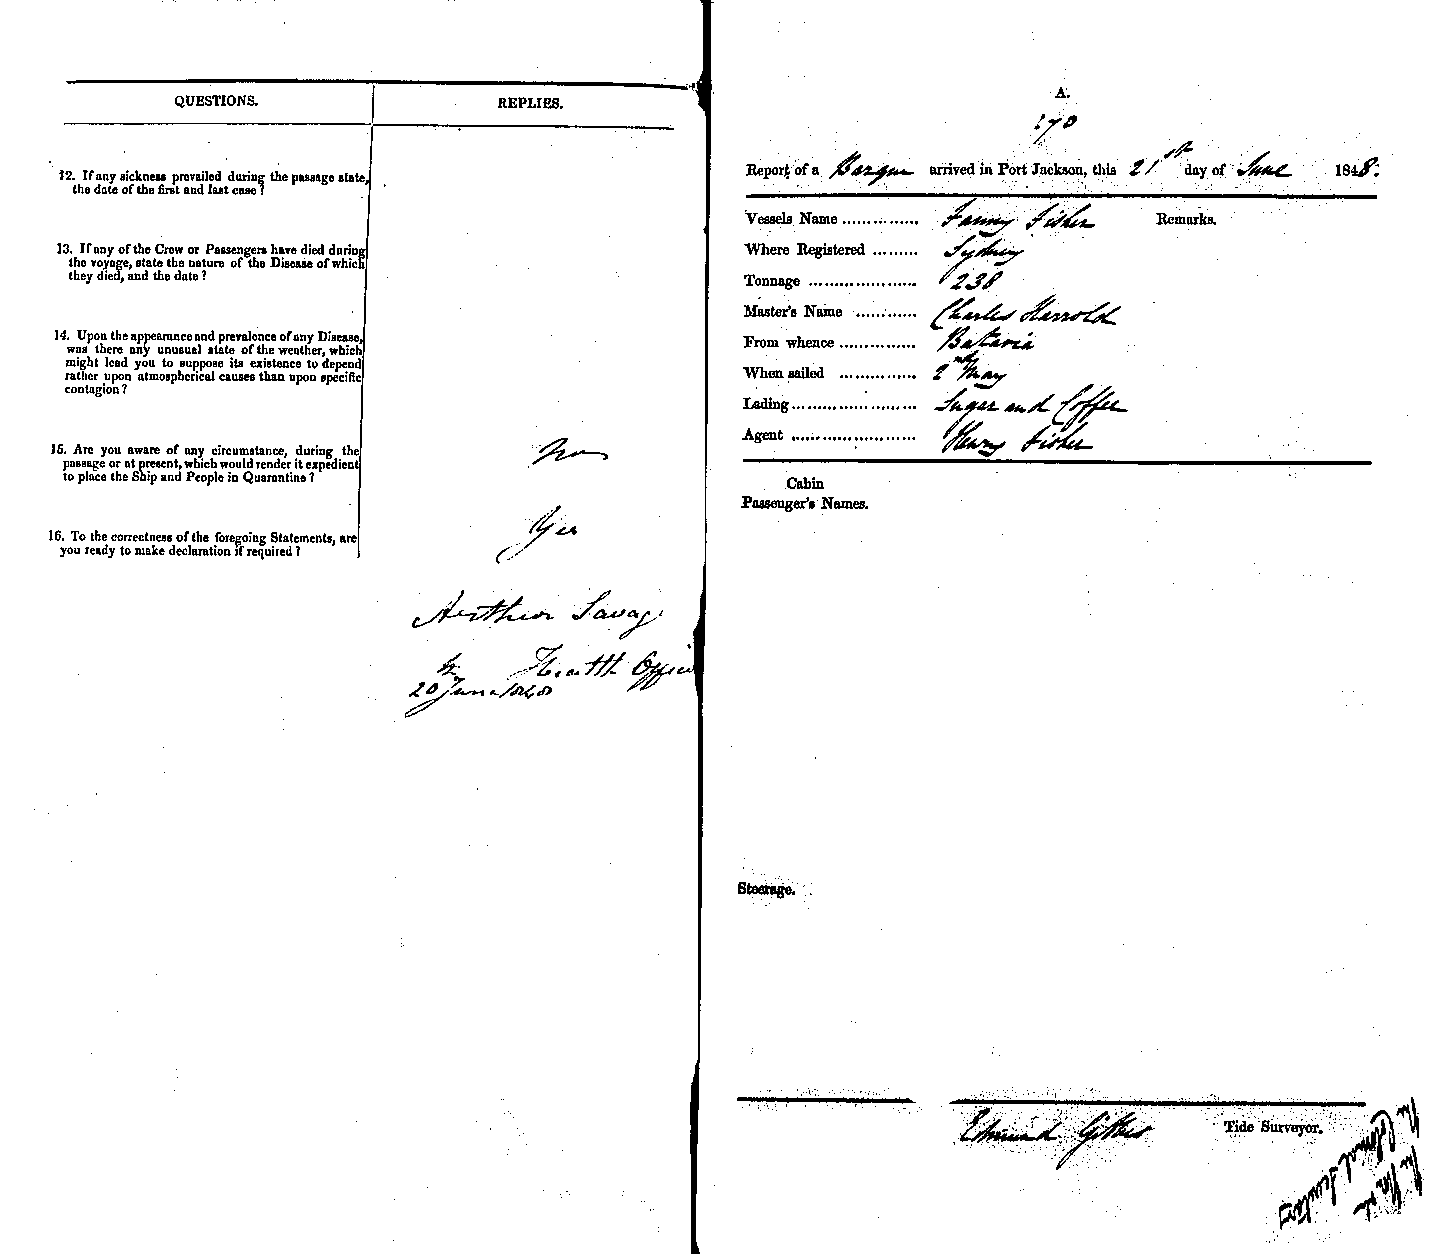 QUESTIONS. REPLIES.
12. If any sickness prevailed during the passage state,
the date of the first and last case?
13. If any of the Crew or Passengers have died during
the voyage, state the nature of the Disease of which
they died, and the date?
14. Upon the appearance and prevalence of any Disease,
was there any unusual state of the weather, which
might lead you to suppose its existence to depend
rather upon atmospherical causes than upon specific
contagion?
15. Are you aware of any circumstance, during the
passage or at present, which would render it expedient
to place the Ship and People in Quarantine?
No
16. To the correctness of the foregoing Statements, are
you ready to make declaration if required?
Yes
Arthur Savage
Health Officer
20 June 1848
A.
170
Report of a Barque arrived in Port Jackson, this 21st day of June 1848.
Vessels Name ............... Fanny Fisher Remarks.
Where Registered ......... Sydney
Tonnage ..................... 238
Master's Name ............ Charles Harrold
From whence ............... Batavia
When sailed ............... 2nd May
Lading........................ Sugar and Coffee
Agent ........................ Henry Fisher
Cabin
Passenger's Names.
Steerage.
Edmund Gilkes Tide Surveyor.
The Colonial Secretary